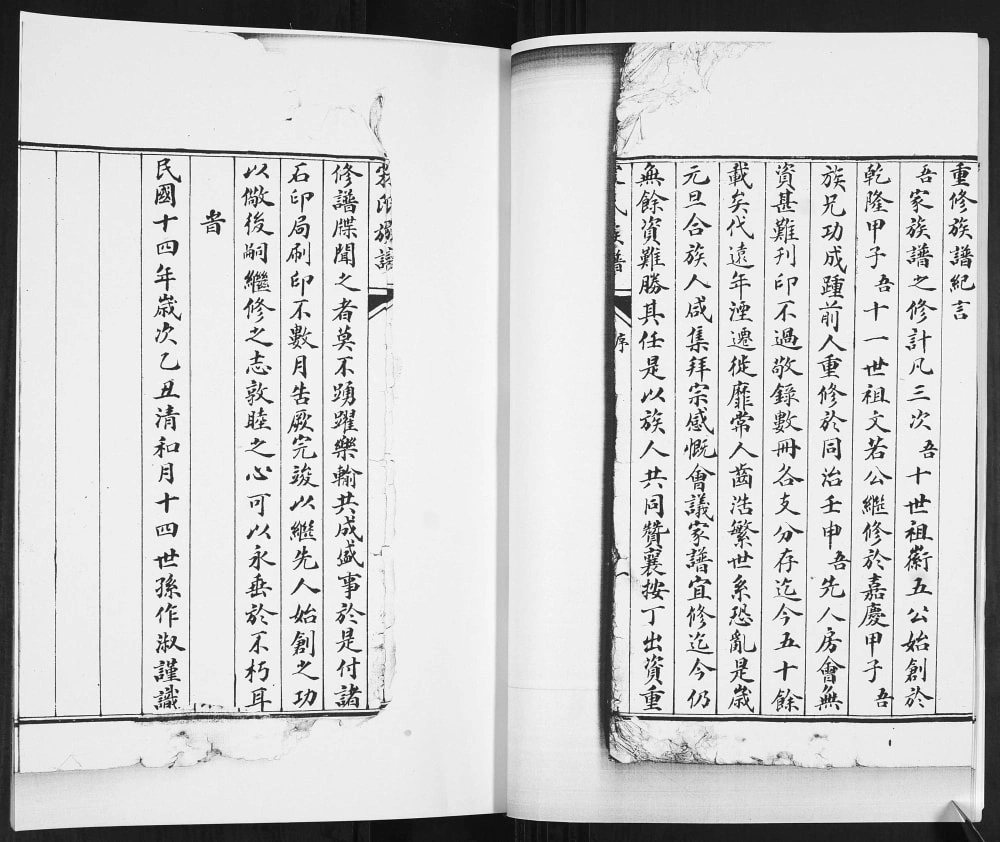 重修族譜紀言
吾家族譜之修計凡三次吾十世祖蘅五公始創於
乾隆甲子吾十一世祖文若公繼修於嘉慶甲子吾
族兄功成踵前人重修於同治壬申吾先人房會無
資甚難刊印不過敬錄數冊各支分存迄今五十餘
載矣代遠年湮遷徙靡常人齒浩繁世系恐亂是歲
元旦合族人咸集拜宗感慨會議家譜宜修迄今仍
無餘資難勝其任是以族人共同贊襄按丁出資重
氏族譜
序
一
族譜
修譜牒聞之者莫不踴躍樂輸共成盛事於是付諸
石印局刷印不數月告厥完竣以繼先人始創之功
以儆後嗣繼修之志敦睦之心可以永垂於不朽耳
旹
民國十四年歲次乙丑清和月十四世孫作淑謹識